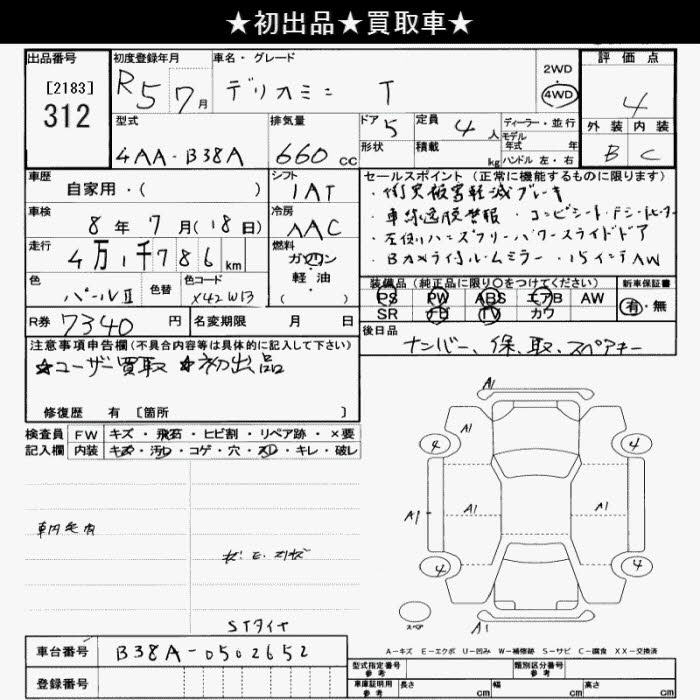 ★初出品★買取車★
出品番号
[2183]
312
初度登録年月
R5 7月
車名・グレード
デリカミニ T
2WD
・
4WD
評価点
4
外装 内装
B C
型式
4AA-B38A
排気量
660 cc
ドア 5
形状
定員 4 人
積載 kg
ディーラー・並行
モデル
年式 年
ハンドル 左・右
車歴
自家用・( )
シフト
IAT
車検
8年 7月(18日)
冷房
AAC
走行
4万1千786 km
燃料
ガソリン
軽・油
( )
色
パールⅡ
色替
色コード
X42W13
R券 7340 円
名変期限 月 日
セールスポイント(正常に機能するものに限ります)
・衝突被害軽減ブレーキ
・車線逸脱警報・コンビシート・Fシートヒーター
・左側ハンズフリーパワースライドドア
・Bカメラ付ルームミラー・15インチAW
装備品(純正品に限り○をつけてください)
PS PW ABS エアB AW
SR ナビ TV カワ
新車保証書
有・無
後日品
ナンバー、保、取、スペアキー
注意事項申告欄(不具合内容等は具体的に記入して下さい)
☆ユーザー買取 ☆初出品
修復歴 有 [箇所 ]
検査員 FW キズ・飛石・ヒビ割・リペア跡・×要
記入欄 内装 キズ・汚レ・コゲ・穴・スレ・キレ・破レ
STタイヤ
A1
A1
4
4
A1
A1
A1
4
4
スペア
A1
A-キズ E-エクボ U-凹み W-補修跡 S-サビ C-腐食 XX-交換済
車台番号 B38A-0502652
登録番号
型式指定番号
参考
類別区分番号
参考
車庫証明用
参考
長さ cm 幅 cm 高さ cm